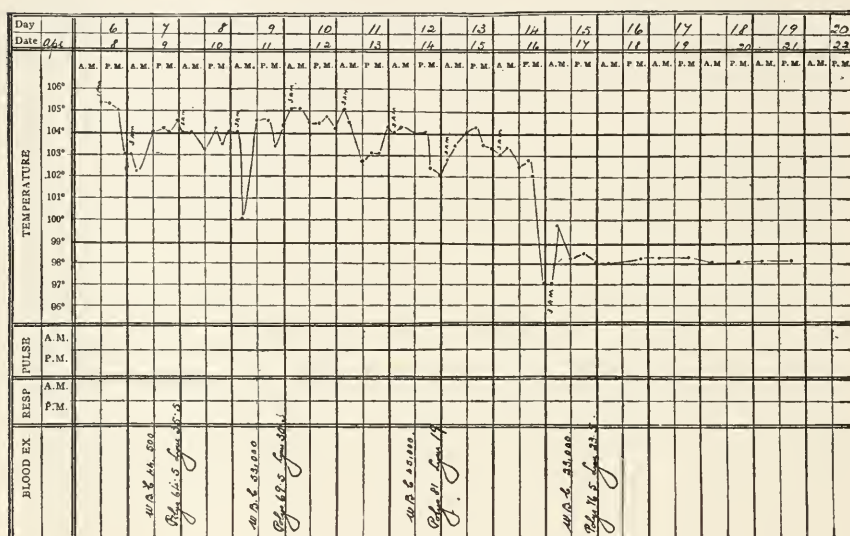 Day 6 7 8 9 10 11 12 13 14 15 16 17 18 19 20
Date Apr 8 9 10 11 12 13 14 15 16 17 18 19 20 21 22
A.M. P.M. A.M. P.M. A.M. P.M. A.M. P.M. A.M. P.M. A.M. P.M. A.M. P.M. A.M. P.M. A.M. P.M. A.M. P.M. A.M. P.M. A.M. P.M. A.M. P.M. A.M. P.M. A.M. P.M.
TEMPERATURE
106°
105°
104°
103°
102°
101°
100°
99°
98°
97°
96°
PULSE
A.M.
P.M.
RESP
A.M.
P.M.
BLOOD EX
W B C 500
Polys 64.5
W B C 33,000
Polys 69.5
W B C
Polys 81 19
W B C 33,000
Polys 76.5 23.5